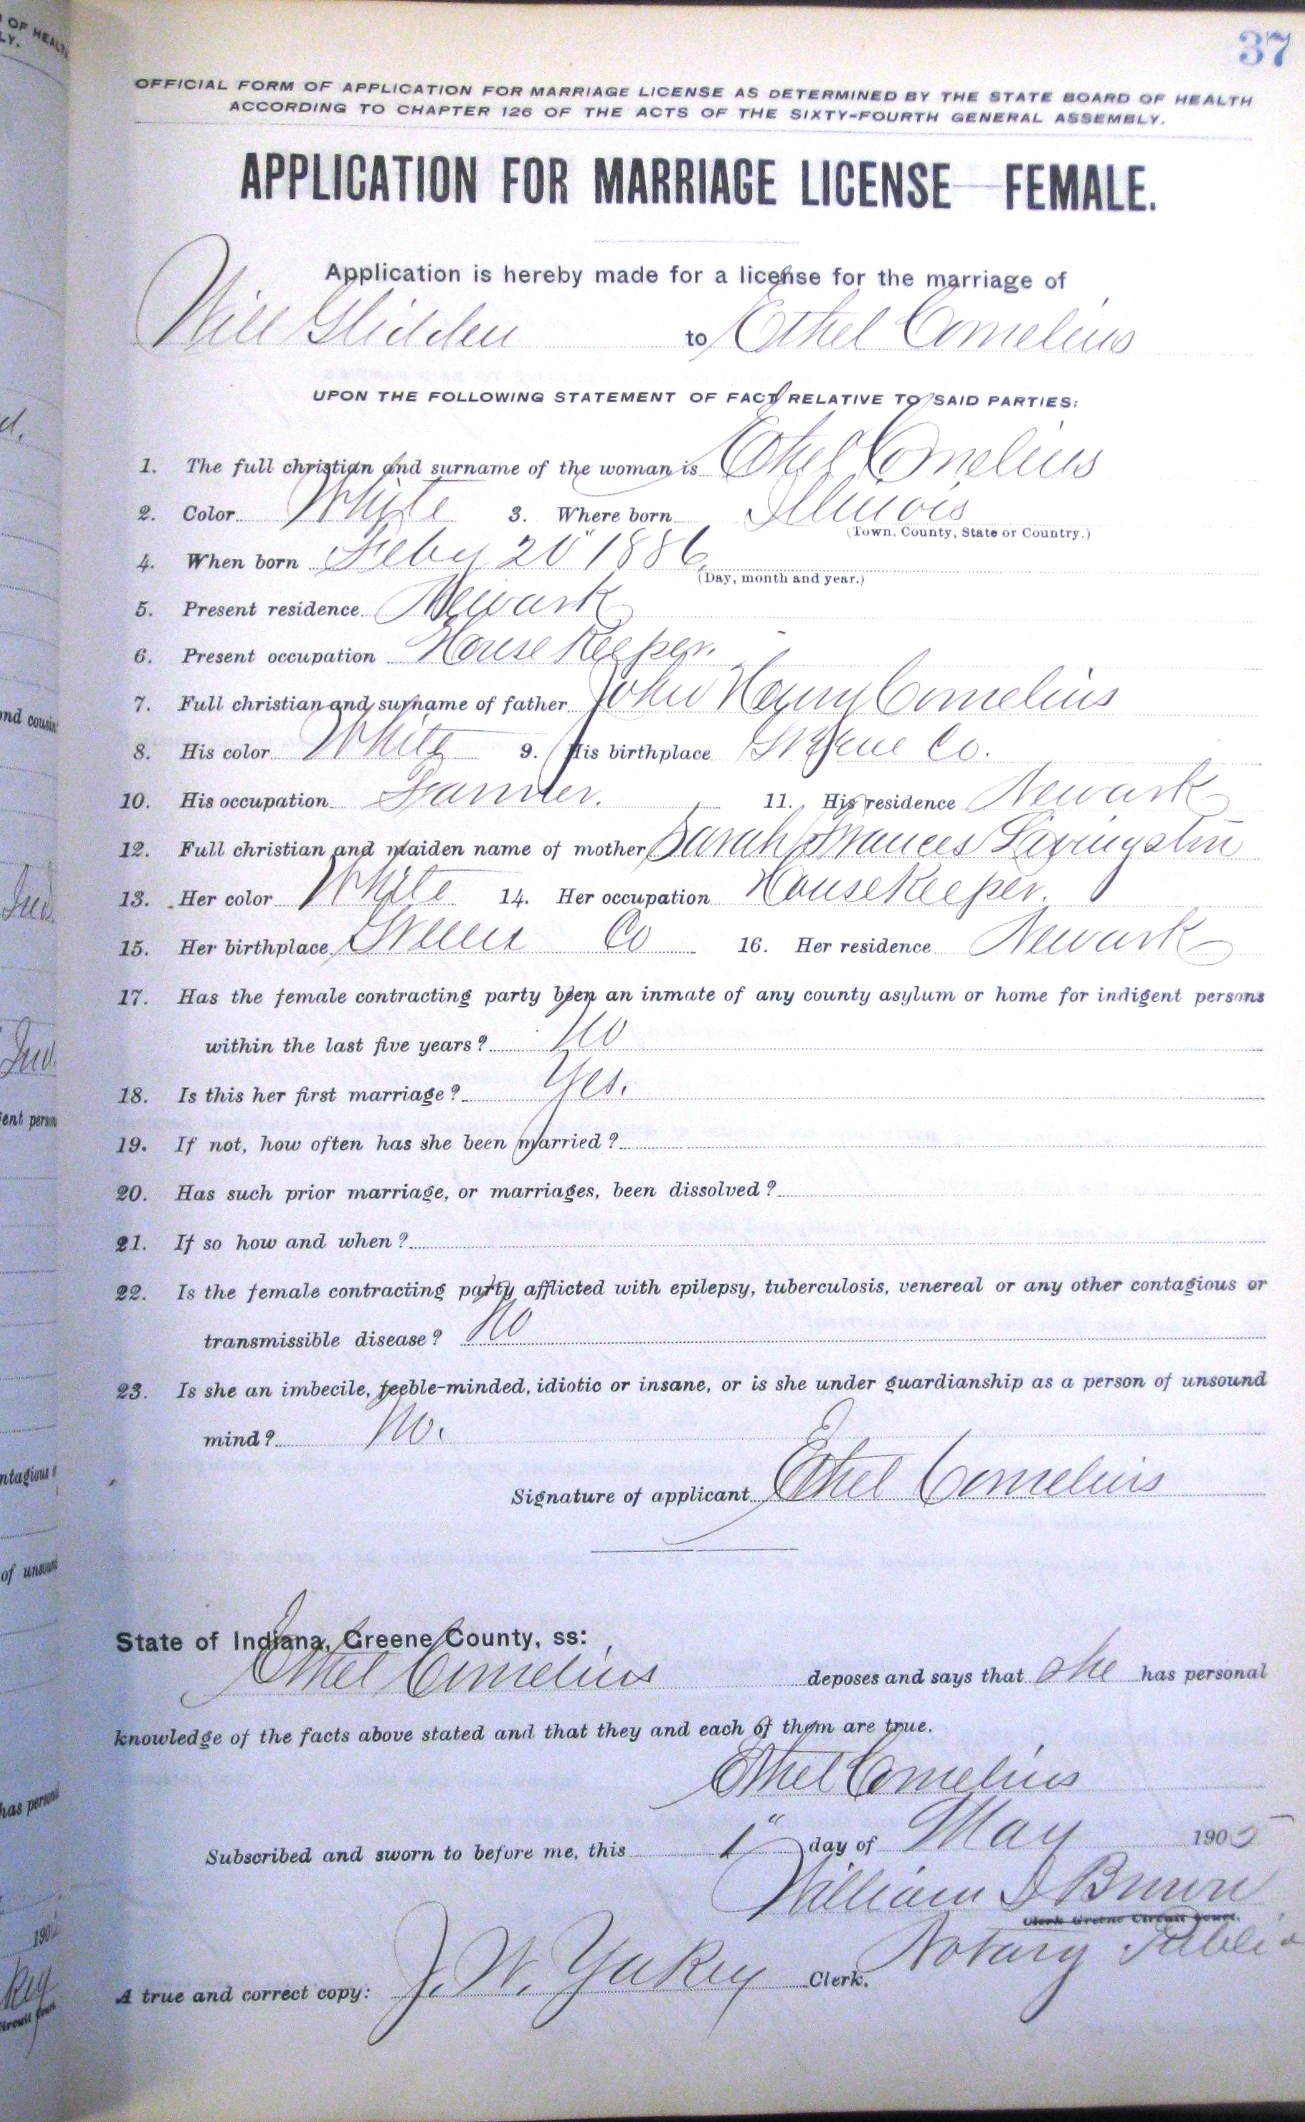 37
OFFICIAL FORM OF APPLICATION FOR MARRIAGE LICENSE AS DETERMINED BY THE STATE BOARD OF HEALTH
ACCORDING TO CHAPTER 126 OF THE ACTS OF THE SIXTY-FOURTH GENERAL ASSEMBLY.
APPLICATION FOR MARRIAGE LICENSE—FEMALE.
Application is hereby made for a license for the marriage of
Will Glidden to Ethel Cornelius
UPON THE FOLLOWING STATEMENT OF FACT RELATIVE TO SAID PARTIES:
1. The full christian and surname of the woman is Ethel Cornelius
2. Color White 3. Where born Illinois
(Town, County, State or Country.)
4. When born Feby 20" 1886
(Day, month and year.)
5. Present residence Newark
6. Present occupation House Keeper.
7. Full christian and surname of father John Henry Cornelius
8. His color White 9. His birthplace Greene Co.
10. His occupation Farmer. 11. His residence Newark
12. Full christian and maiden name of mother Sarah Frances Livingston
13. Her color White 14. Her occupation HouseKeeper.
15. Her birthplace Greene Co 16. Her residence Newark
17. Has the female contracting party been an inmate of any county asylum or home for indigent persons
within the last five years? No
18. Is this her first marriage? Yes.
19. If not, how often has she been married?
20. Has such prior marriage, or marriages, been dissolved?
21. If so how and when?
22. Is the female contracting party afflicted with epilepsy, tuberculosis, venereal or any other contagious or
transmissible disease? No
23. Is she an imbecile, feeble-minded, idiotic or insane, or is she under guardianship as a person of unsound
mind? No.
Signature of applicant Ethel Cornelius
State of Indiana, Greene County, ss:
Ethel Cornelius deposes and says that she has personal
knowledge of the facts above stated and that they and each of them are true.
Ethel Cornelius
Subscribed and sworn to before me, this 1" day of May 1905
William I Brown
Clerk Greene Circuit Court.
Notary Public
A true and correct copy: J. W. Yakey Clerk.